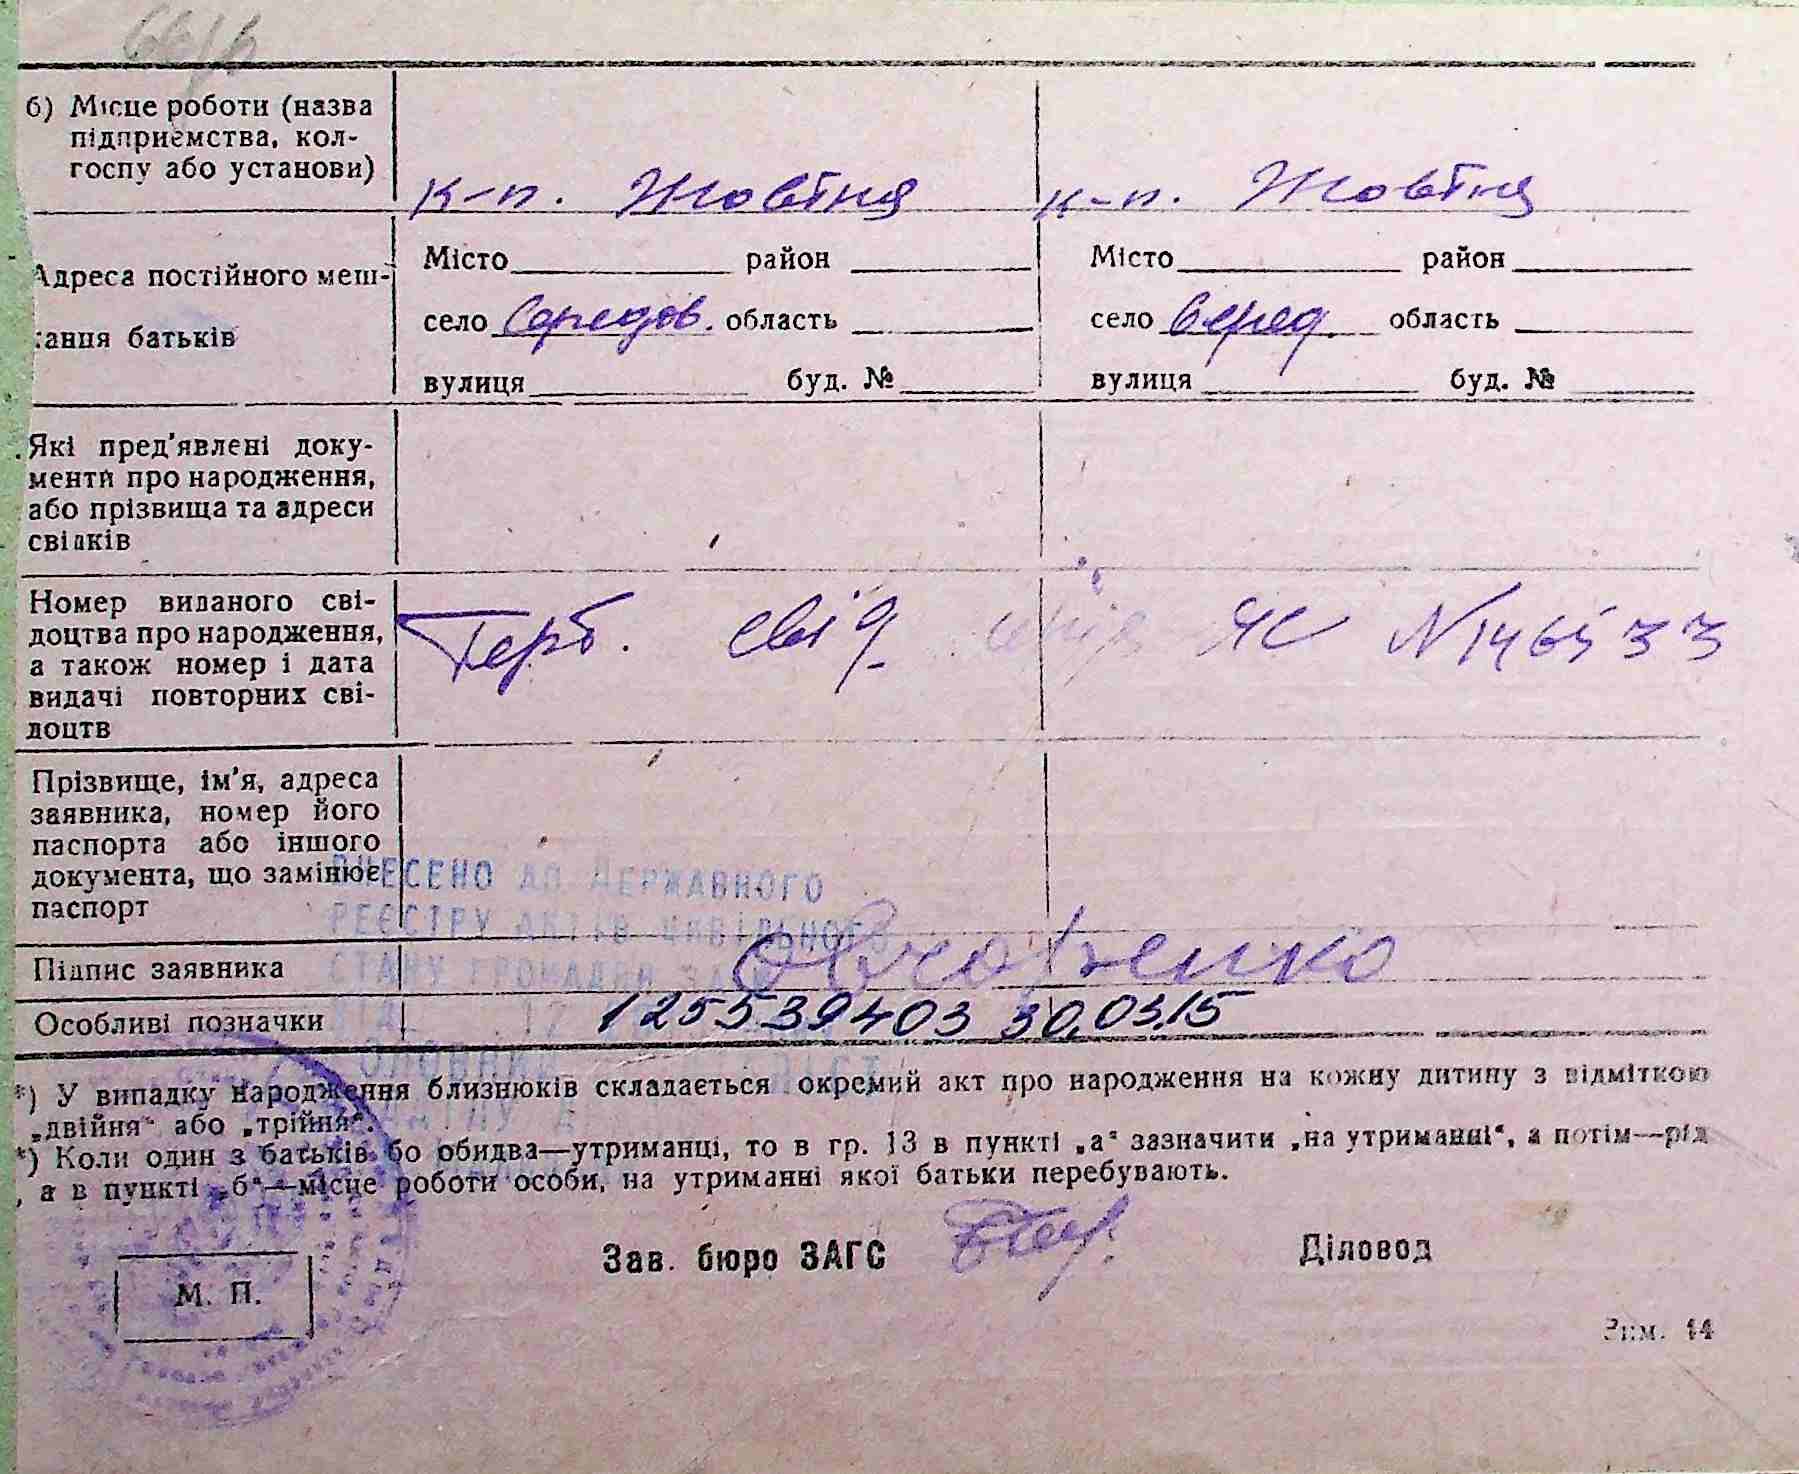 66/6
б) Місце роботи (назва
підприємства, кол-
госпу або установи)
к-п. Жовтня
к-п. Жовтня
Адреса постійного меш-
кання батьків
Місто район
село Середов. область
вулиця буд. №
Місто район
село Серед. область
вулиця буд. №
Які пред'явлені доку-
менти про народження,
або прізвища та адреси
свідків
Номер виданого сві-
доцтва про народження,
а також номер і дата
видачі повторних сві-
доцтв
Герб. свід. серія ЯС N 146533
Прізвище, ім'я, адреса
заявника, номер його
паспорта або іншого
документа, що замінює
паспорт
ВНЕСЕНО ДО ДЕРЖАВНОГО
РЕЄСТРУ АКТІВ ЦИВІЛЬНОГО
СТАНУ ГРОМАДЯН ЗА №
Підпис заявника
Особливі позначки
125539403 30.03.15
*) У випадку народження близнюків складається окремий акт про народження на кожну дитину з відміткою
„двійня“ або „трійня“.
*) Коли один з батьків бо обидва—утриманці, то в гр. 13 в пункті „а“ зазначити „на утриманні“, а потім—рід
, а в пункті „б“—місце роботи особи, на утриманні якої батьки перебувають.
Зав. бюро ЗАГС
Діловод
М. П.
Зим. 14